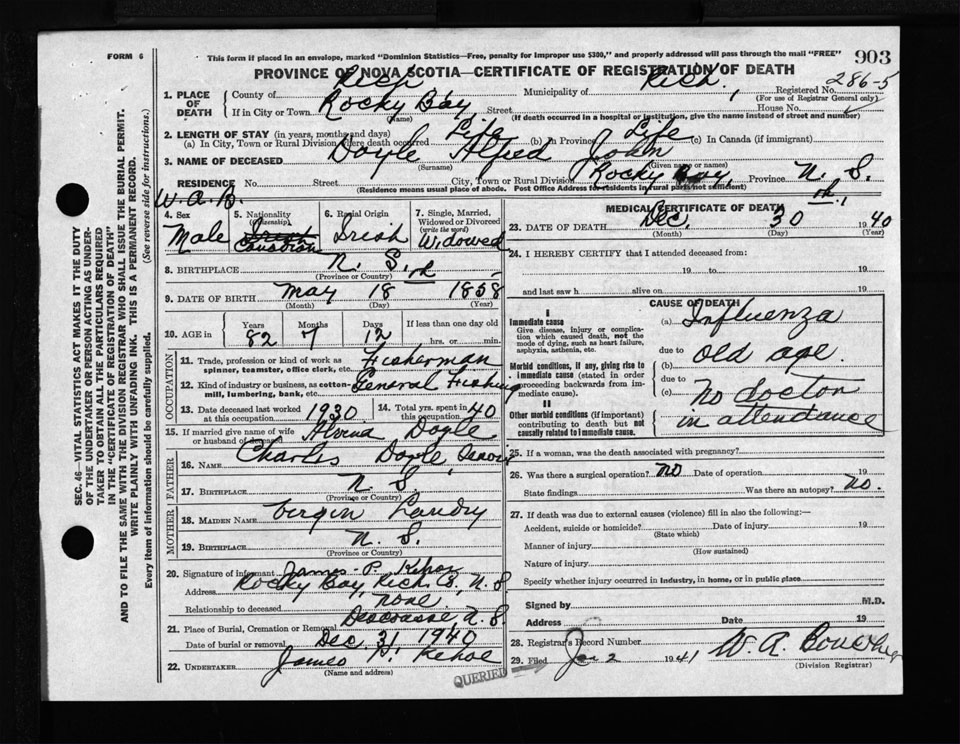 FORM 6
This form if placed in an envelope, marked "Dominion Statistics—Free, penalty for improper use $300," and properly addressed will pass through the mail "FREE"
903
PROVINCE OF NOVA SCOTIA—CERTIFICATE OF REGISTRATION OF DEATH
286-5
1. PLACE OF DEATH
County of Rich Municipality of Rich. Registered No.
(For use of Registrar General only)
If in City or Town Rocky Bay Street House No.
(Name) (If death occurred in a hospital or institution, give the name instead of street and number)
2. LENGTH OF STAY (in years, months and days)
(a) In City, Town or Rural Division where death occurred Life (b) In Province Life (c) In Canada (if immigrant)
3. NAME OF DECEASED Doyle Alfred John
(Surname) (Given name or names)
RESIDENCE No. Street City, Town or Rural Division Rocky Bay, Province N. S.
(Residence means usual place of abode. Post Office Address for residents in rural parts not sufficient)
W. A. B.
4. Sex Male
5. Nationality (Citizenship) Canadian
6. Racial Origin Irish
7. Single, Married, Widowed or Divorced (write the word) Widowed
8. BIRTHPLACE N. S.
(Province or Country)
9. DATE OF BIRTH May 18 th 1858
(Month) (Day) (Year)
10. AGE in Years Months Days If less than one day old
82 7 12 hrs. or min.
OCCUPATION
11. Trade, profession or kind of work as spinner, teamster, office clerk, etc. Fisherman
12. Kind of industry or business, as cotton-mill, lumbering, bank, etc. General Fishing
13. Date deceased last worked at this occupation 1930
14. Total yrs. spent in this occupation 40
15. If married give name of wife or husband of deceased Doyle
FATHER
16. NAME Charles Doyle
17. BIRTHPLACE N. S.
(Province or Country)
MOTHER
18. MAIDEN NAME Vergin Landry
19. BIRTHPLACE N. S.
(Province or Country)
20. Signature of informant James P. Kehoe
Address Rocky Bay, Rich. Co., N. S.
Relationship to deceased none
21. Place of Burial, Cremation or Removal Descousse N. S.
Date of burial or removal Dec. 31 1940
22. UNDERTAKER James P. Kehoe
(Name and address)
MEDICAL CERTIFICATE OF DEATH
23. DATE OF DEATH Dec. 30 th, 1940
(Month) (Day) (Year)
24. I HEREBY CERTIFY that I attended deceased from:
19 to 19
and last saw h alive on 19
CAUSE OF DEATH
I
Immediate cause (a) Influenza
Give disease, injury or complication which caused death, not the mode of dying, such as heart failure, asphyxia, asthenia, etc.
due to
Morbid conditions, if any, giving rise to immediate cause (stated in order proceeding backwards from immediate cause). (b) old age.
due to
(c) No doctor
II
Other morbid conditions (if important) contributing to death but not causally related to immediate cause. in attendance
25. If a woman, was the death associated with pregnancy?
26. Was there a surgical operation? No Date of operation 19
State findings Was there an autopsy? No.
27. If death was due to external causes (violence) fill in also the following:—
Accident, suicide or homicide? Date of injury 19
(State which)
Manner of injury
(How sustained)
Nature of injury
Specify whether injury occurred in industry, in home, or in public place
Signed by M.D.
Address Date 19
28. Registrar's Record Number
29. Filed Jan 2 1941
(Division Registrar)
QUERIED
SEC. 46—VITAL STATISTICS ACT MAKES IT THE DUTY
OF THE UNDERTAKER OR PERSON ACTING AS UNDER-
TAKER TO OBTAIN ALL THE PARTICULARS REQUIRED
IN THE "CERTIFICATE OF REGISTRATION OF DEATH"
AND TO FILE THE SAME WITH THE DIVISION REGISTRAR WHO SHALL ISSUE THE BURIAL PERMIT.
WRITE PLAINLY WITH UNFADING INK. THIS IS A PERMANENT RECORD.
Every item of information should be carefully supplied. (See reverse side for instructions.)